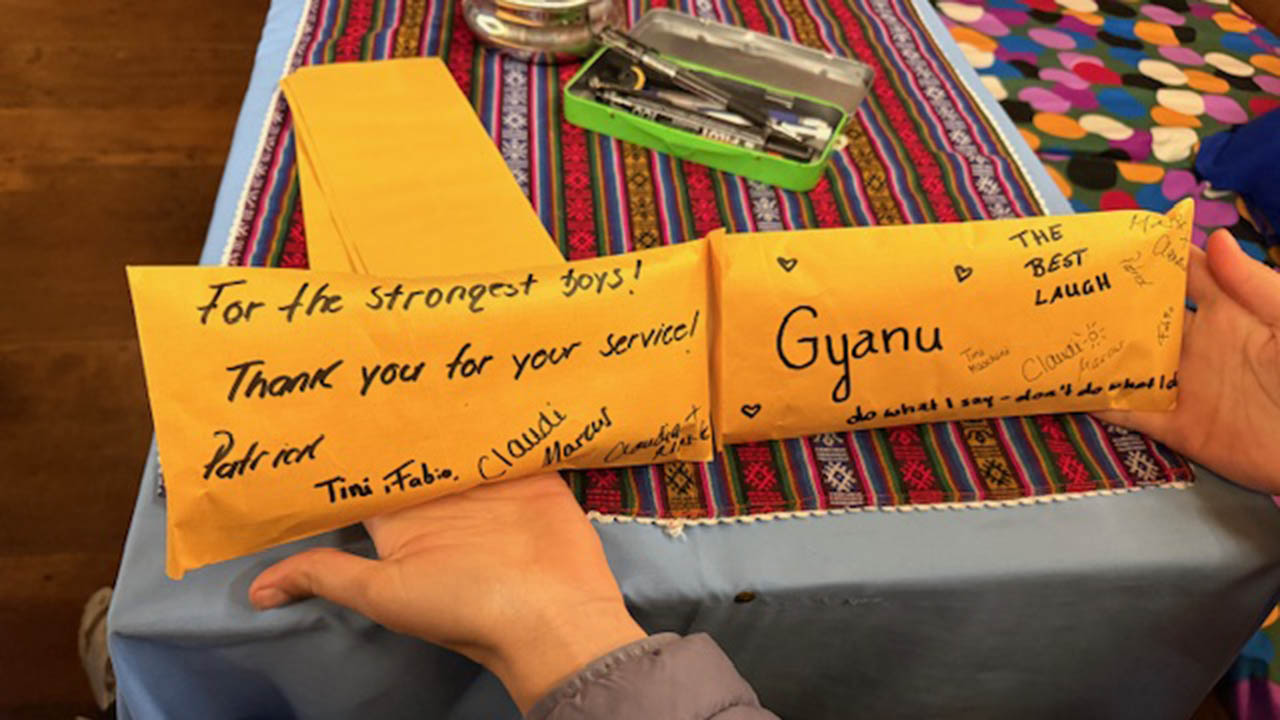 For the strongest boys!
Thank you for your service!
Patrick
Tini, Fabio,
Claudi
Marcus
Claudia +
THE
BEST
LAUGH
Gyanu
Tini
Claudi
Marcus
Fabio
do what I say - don't do what I do